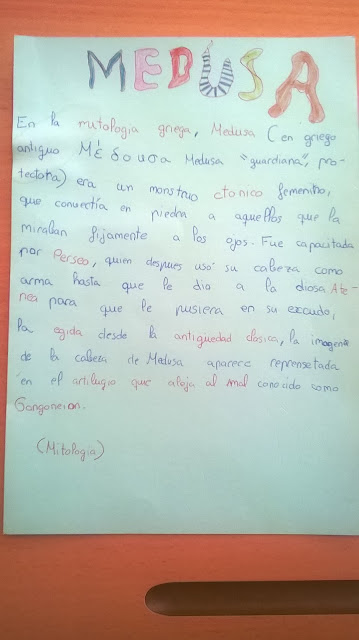 MEDUSA
En la mitologia griega, Medusa (en griego
antiguo Μέδουσα Medusa "guardiana", pro-
tectora) era un monstruo ctonico femenino,
que convectía en piedra a aquellos que la
miraban fijamente a los ojos. Fue capacitada
por Perseo, quien despues usó su cabeza como
arma hasta que le dio a la diosa Ate-
nea para que le pusiera en su excudo,
la egida desde la antigüedad clásica, la imagene
de la cabeza de Medusa aparece reprensetada
en el artilugio que aloja al mal conocido como
Gongoneion.
(Mitologia)